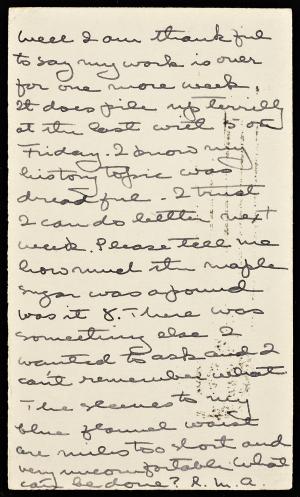 Well I am thankful
to say my work is over
for one more week.
It does pile up terribly
at the last with so on
Friday. I know my
history topic was
dreadful - I trust
I can do better next
week. Please tell me
how much the maple
sugar was a pound
was it 8. There was
something else I
wanted to ask and I
can't remember what
The sleeves to my
blue flannel waist
are miles too short and
very uncomfortable. What
can be done? R.M.A.